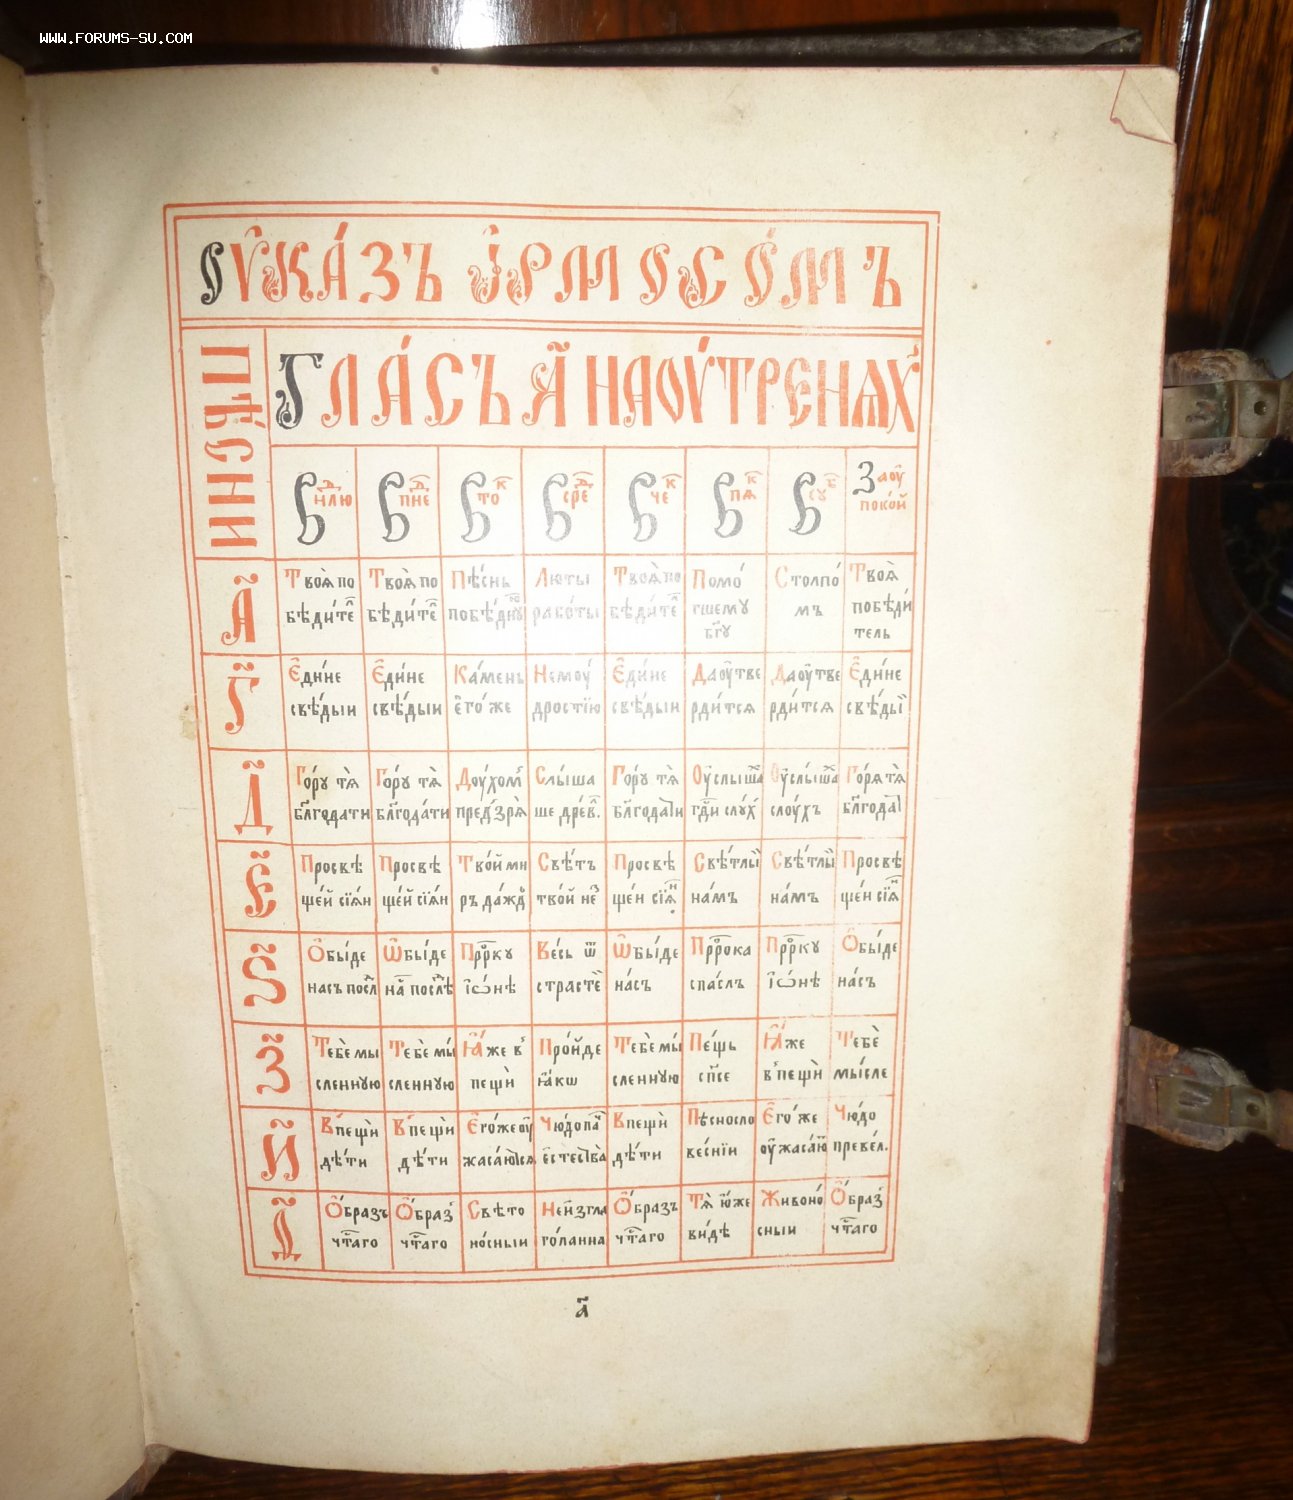 www.forums-su.com
Оука́зъ і҆рмосѡ́мъ
Пѣсни
Гла́съ а҃ на оу́тренѧхъ
В нлю
В пне
В то
В сре
В че
В пѧ
В су
За оу покой
а҃
Твоѧ̀ побѣди́те
Твоѧ̀ побѣди́те
Пѣ́снь побѣ́дную
Люты рабо́ты
Твоѧ̀ по бѣди́те
Помо́гшему бг҃у
Столпо́мъ
Твоѧ̀ побѣди́тель
г҃
Е҆ди́не свѣ́дыи
Е҆ди́не свѣ́дыи
Ка́мень е҆го́же
Нему́дростїю
Е҆ди́не свѣ́дыи
Да оу҆тверди́тсѧ
Да оу҆тверди́тсѧ
Е҆ди́не свѣ́ды
д҃
Го́ру тѧ̀ блг҃ода́ти
Го́ру тѧ̀ блг҃ода́ти
Дꙋ́хом пред̾зрѧ̀
Слы́шаше дре́в.
Го́ру тѧ̀
Оу҆слы́ша гдⷭ҇и слу́х
Оу҆слы́ша слоу́хъ
Го́рѧ тѧ̀
е҃
Просвѣще́й сїѧ́н
Просвѣще́й сїѧ́н
Тво́й миръ да́ждь
Свѣ́тъ тво́й не
Просвѣще́и сїѧ
Свѣ́тлы на́мъ
Свѣ́тлы на́мъ
Просвѣще́и сїѧ
ѕ҃
О҆бы́де насъ посл
Ѡ҆бы́де на посл
Прⷪ҇рку і҆ѡ́нѣ
Ве́сь ѿ страсте
Ѡ҆бы́де на́съ
Прⷪ҇рока спа́слъ
Прⷪ҇рку і҆ѡ́нѣ
О҆бы́де на́съ
з҃
Тебѐ мы́сленную
Тебѐ мы́сленную
Ꙗ҆́же в̾ пещѝ
Про́йде ꙗ҆́кѡ
Тебѐ мы́сленную
Пе́щь сп҃се
Ꙗ҆́же в̾ пещѝ
Тебѐ мы́сле
и҃
В пещѝ дѣ́ти
В пещѝ дѣ́ти
Е҆го́же оу҆жаса́ютсѧ
Чю́до па е҆стества̀
В пещѝ дѣ́ти
Пѣснословесні́и
Е҆го́же оу҆жаса́ю
Чю́до превел.
Ѳ҃
О҆́бразъ чⷭ҇таго
О҆́браз̾ чⷭ҇таго
Свѣтоно́сныи
Неи҆зглаго́ланна
О҆́бразъ чⷭ҇таго
Тѧ̀ ю҆́же ви́дѣ
Живоно́сныи
О҆́браз̾ чⷭ҇таго
а҃